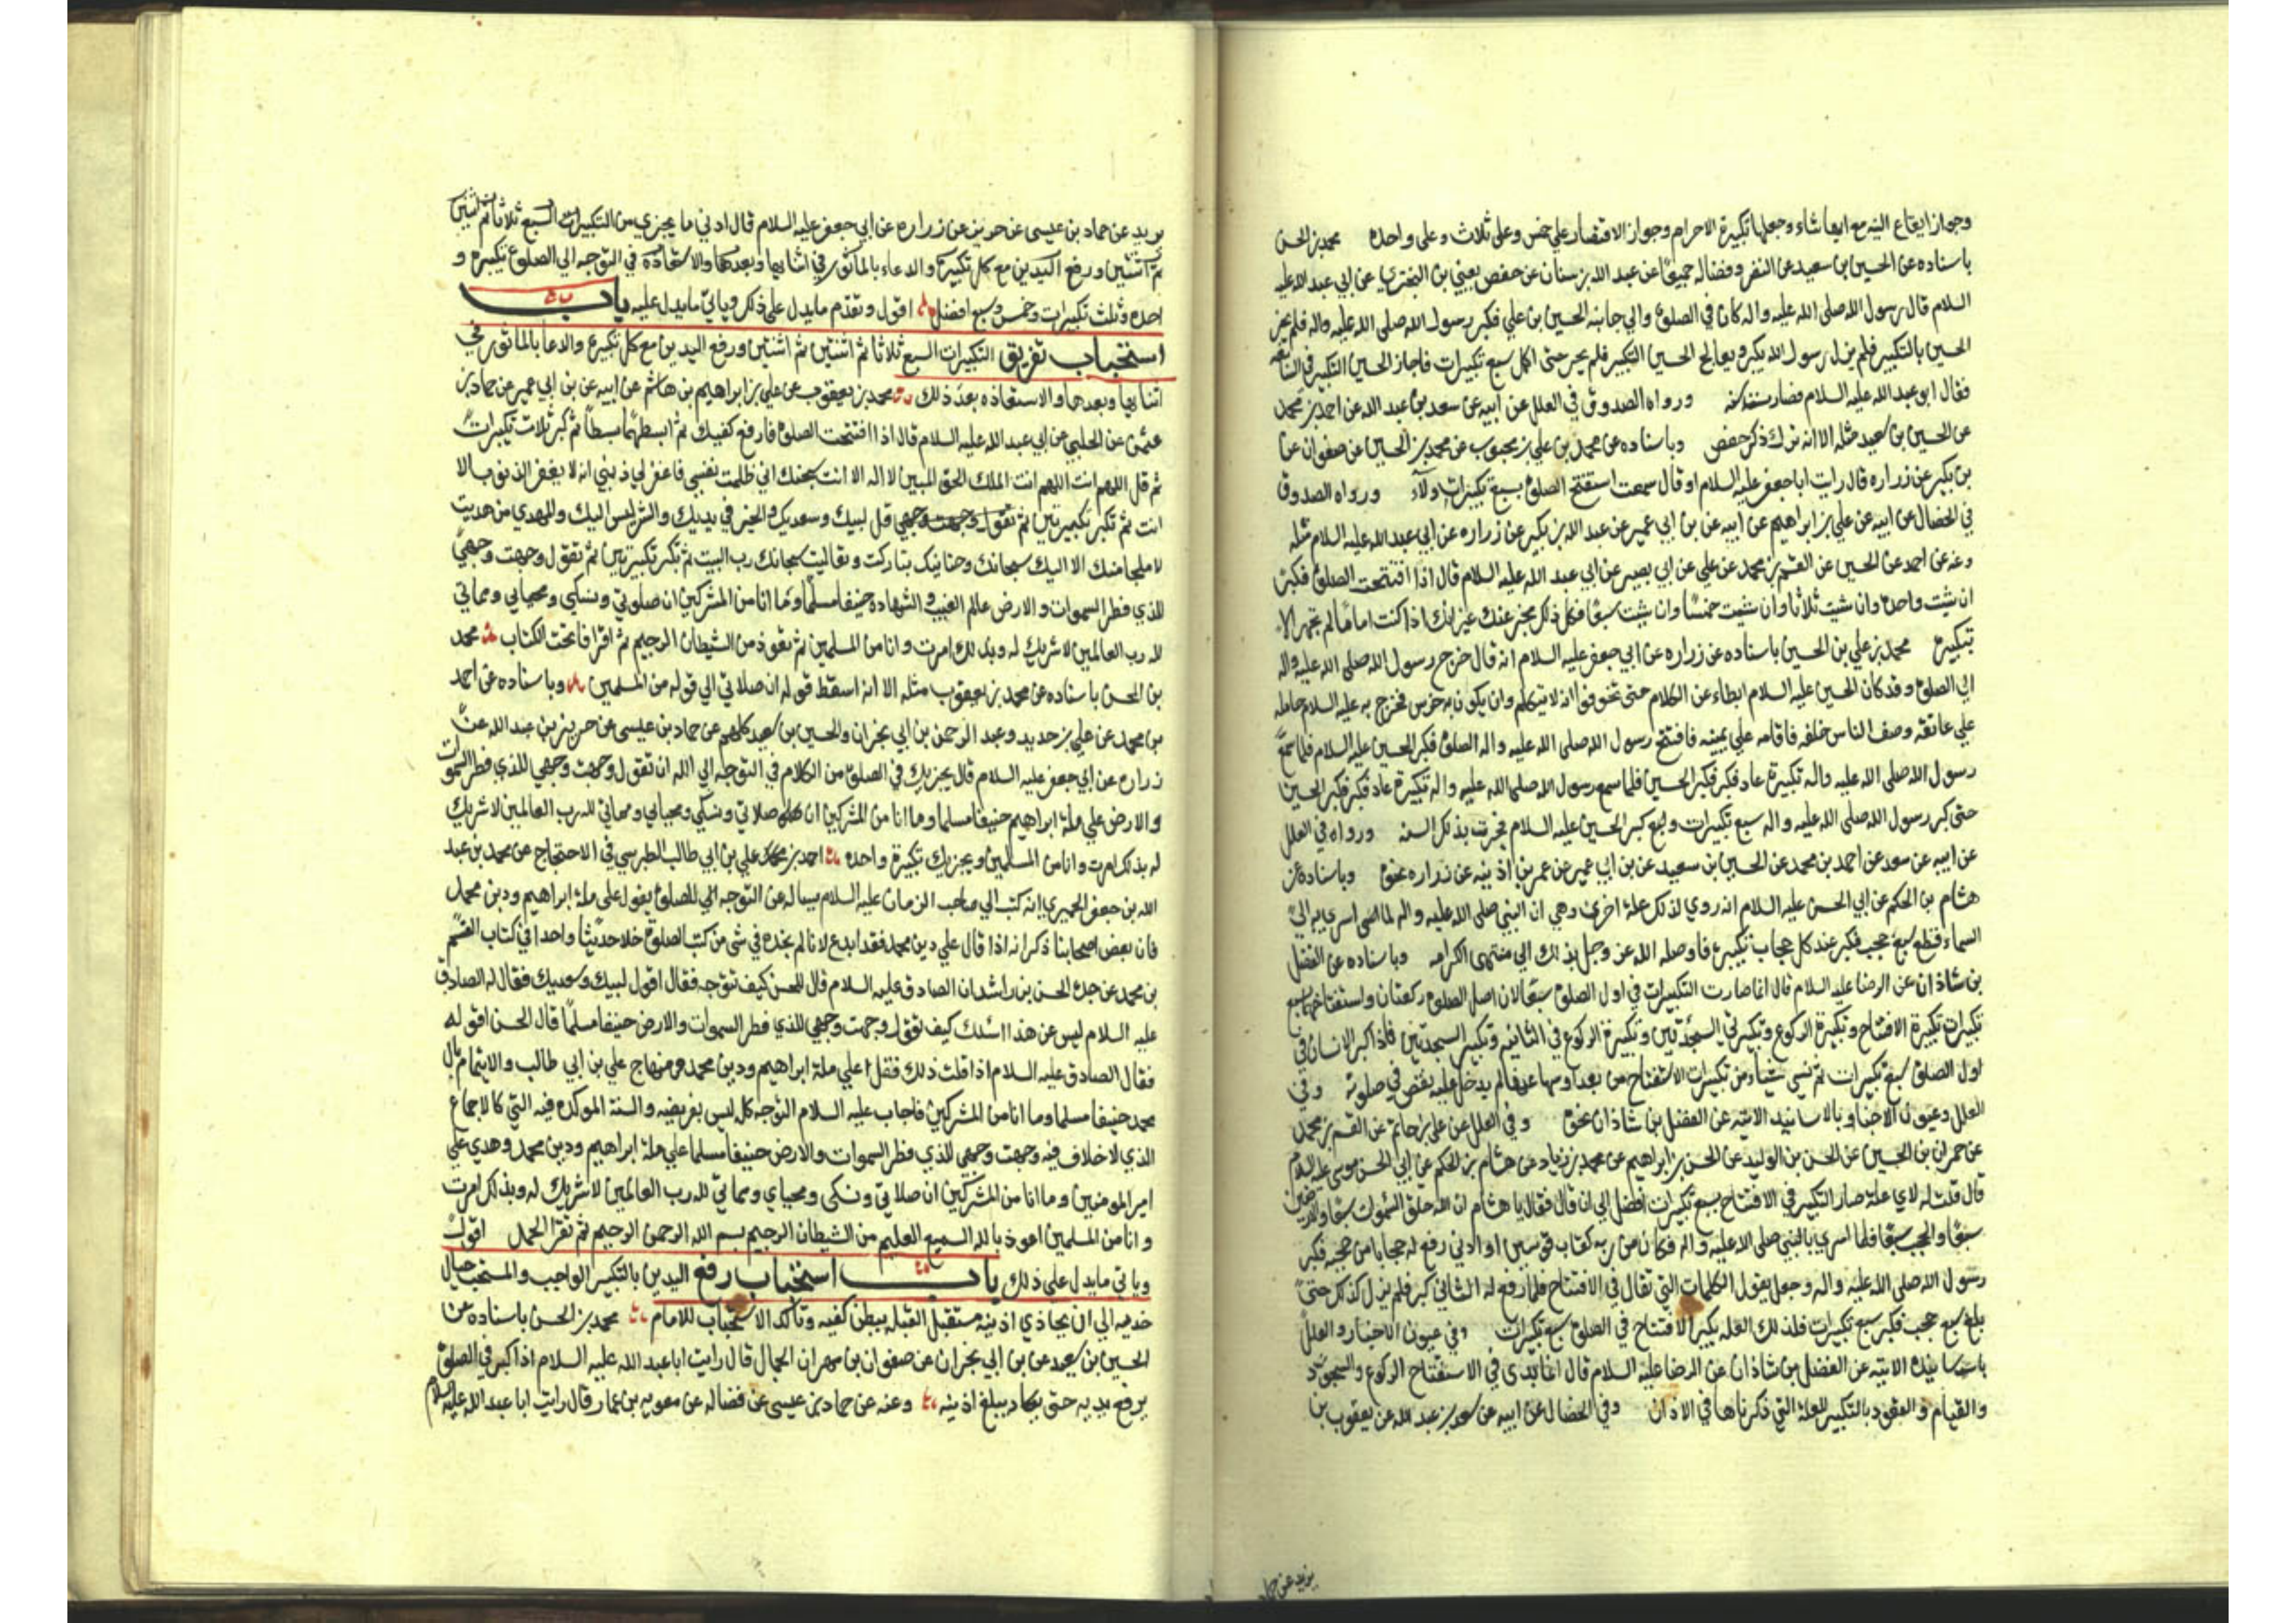 وجواز ايقاع النية مع ايها شاء وجعلها تكبيرة الاحرام وجواز الاقتصار علي خمس وعلي ثلاث وعلي واحدة محمد بن الحسن
باسناده عن الحسين بن سعيد عن النضر وفضاله جميعا عن عبد الله بن سنان عن حفص يعني بن البختري عن ابي عبد الله عليه
السلام قال رسول الله صلى الله عليه واله كان في الصلوة والي جانبه الحسين بن علي فكبر رسول الله صلى الله عليه واله فلم يحر
الحسين بالتكبير فلم يزل رسول الله يكبر ويعالج الحسين التكبير فلم يحر حتى اكمل سبع تكبيرات فاحار الحسين التكبير في السابعة
فقال ابو عبد الله عليه السلام فصارت سنة ورواه الصدوق في العلل عن ابيه عن سعد بن عبد الله عن احمد بن محمد
عن الحسين بن سعيد مثله الا انه ترك ذكر حفص وباسناده عن محمد بن علي بن محبوب عن محمد بن الحسين عن صفوان عن
بن بكير عن زراره قال رايت ابا جعفر عليه السلام او قال سمعت استفتح الصلوة بسبع تكبيرات ولاء ورواه الصدوق
في الخصال عن ابيه عن علي بن ابراهيم عن ابيه عن بن ابي عمير عن عبد الله بن بكير عن زراره عن ابي عبد الله عليه السلام مثله
وعنه عن احمد عن الحسين عن القسم بن محمد عن علي عن ابي بصير عن ابي عبد الله عليه السلام قال اذا افتتحت الصلوة فكبر
ان شيت واحدة وان شيت ثلاثا وان شيت خمسا وان شيت سبعا فكل ذلك مجز عنك غير انك اذا كنت اماما لم تجهر الا
بتكبيرة محمد بن علي بن الحسين باسناده عن زراره عن ابي جعفر عليه السلام انه قال خرج رسول الله صلى الله عليه واله
الي الصلوة وقد كان الحسين عليه السلام ابطاء عن الكلام حتى تخوفوا انه لا يتكلم وان يكون به خرس فخرج به عليه السلام حامله
علي عاتقه وصف الناس خلفه فاقامه علي يمينه فافتتح رسول الله صلى الله عليه واله الصلوة فكبر الحسين عليه السلام فلما سمع
رسول الله صلى الله عليه واله تكبيرة عاد فكبر فكبر الحسين فلما سمع رسول الله صلى الله عليه واله تكبيرة عاد فكبر فكبر الحسين
حتى كبر رسول الله صلى الله عليه واله سبع تكبيرات وكبر الحسين عليه السلام فجرت بذلك السنه ورواه في العلل
عن ابيه عن سعد عن احمد بن محمد عن الحسين بن سعيد عن بن ابي عمير عن عمر بن اذينه عن زراره نحوه وباسناده عن
هشام بن الحكم عن ابي الحسن عليه السلام انه روي لذلك علة اخرى وهي ان النبي صلى الله عليه واله لما اسري به الي
السماء قطع سبع حجب فكبر عند كل حجاب تكبيرة فاوصله الله عز وجل بذلك الي منتهى الكرامه وباسناده عن الفضل
بن شاذان عن الرضا عليه السلام قال انما صارت التكبيرات في اول الصلوة سبعا لان اصل الصلوة ركعتان واستفتاحهما بسبع
تكبيرات تكبيرة الافتتاح وتكبيرة الركوع وتكبيرتي السجدتين وتكبيرة الركوع في الثانيه وتكبيرتي السجدتين فاذا كبر الانسان في
اول الصلوة سبع تكبيرات ثم نسي شياء من تكبيرات الاستفتاح من بعد او سها عنها لم يدخل عليه نقص في صلوته وفي
العلل وعيون الاخبار بالاسانيد الاتيه عن الفضل بن شاذان نحوه وفي العلل عن علي بن حاتم عن القسم بن محمد
عن حمدان بن الحسين عن الحسن بن الوليد عن الحسن بن ابراهيم عن محمد بن زياد عن هشام بن الحكم عن ابي الحسن موسى عليه السلام
قال قلت له لاي علة صار التكبير في الافتتاح بسبع تكبيرات افضل الي ان قال فقال يا هشام ان الله خلق السموات سبعا والارضين
سبعا والحجب سبعا فلما اسري بالنبي صلى الله عليه واله فكان من ربه كقاب قوسين او ادنى رفع له حجابا من حجبه فكبر
رسول الله صلى الله عليه واله وجعل يقول الكلمات التي تقال في الافتتاح فلما رفع له الثاني كبر فلم يزل كذلك حتى
بلغ سبع حجب فكبر سبع تكبيرات فلذلك العله يكبر للافتتاح في الصلوة سبع تكبيرات وفي عيون الاخبار والعلل
باسانيده الاتيه عن الفضل بن شاذان عن الرضا عليه السلام قال انما بدى في الاستفتاح الركوع والسجود
والقيام والقعود بالتكبير للعلة التي ذكرناها في الاذان وفي الخصال عن ابيه عن سعد بن عبد الله عن يعقوب بن
يزيد عن حماد
يزيد عن حماد بن عيسى عن حريز عن زراره عن ابي جعفر عليه السلام قال ادنى ما يجزي من التكبيرات السبع ثلاثا ثم اثنتين
ثم اثنتين ورفع اليدين مع كل تكبيرة والدعاء بالماثور في اثنايها وبعدها والاستعاذه في التوجه الي الصلوة تكبيرة و
احدة وثلث تكبيرات وخمس وسبع افضل اقول وتقدم ما يدل علي ذلك وياتي ما يدل عليه باب
استحباب تفريق التكبيرات السبع ثلاثا ثم اثنتين ثم اثنتين ورفع اليدين مع كل تكبيرة والدعا بالماثور في
اثنايها وبعدها والاستعاذه بعد ذلك محمد بن يعقوب عن علي بن ابراهيم بن هاشم عن ابيه عن بن ابي عمير عن حماد بن
عثمن عن الحلبي عن ابي عبد الله عليه السلام قال اذا افتتحت الصلوة فارفع كفيك ثم ابسطهما بسطا ثم كبر ثلاث تكبيرات
ثم قل اللهم انت الملك الحق المبين لا اله الا انت سبحنك اني ظلمت نفسي فاغفر لي ذنبي انه لا يغفر الذنوب الا
انت ثم تكبر تكبيرتين ثم قل لبيك وسعديك والخير في يديك والشر ليس اليك والمهدي من هديت
لا ملجا منك الا اليك سبحانك وحنانيك تباركت وتعاليت سبحانك رب البيت ثم تكبر تكبيرتين ثم تقول وجهت وجهي
للذي فطر السموات والارض عالم الغيب والشهاده حنيفا مسلما وما انا من المشركين ان صلوتي ونسكي ومحيايي ومماتي
لله رب العالمين لا شريك له وبذلك امرت وانا من المسلمين ثم تعوذ من الشيطان الرجيم ثم اقرا فاتحت الكتاب محمد
بن الحسن باسناده عن محمد بن يعقوب مثله الا انه اسقط قوله ان صلاتي الي قوله من المسلمين وباسناده عن احمد
بن محمد عن علي بن حديد وعبد الرحمن بن ابي نجران والحسين بن سعيد كلهم عن حماد بن عيسى عن حريز بن عبد الله عن
زراره عن ابي جعفر عليه السلام قال يجزيك في الصلوة من الكلام في التوجه الي الله ان تقول وجهت وجهي للذي فطر السموات
والارض علي ملة ابراهيم حنيفا مسلما وما انا من المشركين ان صلاتي ونسكي ومحيايي ومماتي لله رب العالمين لا شريك
له بذلك امرت وانا من المسلمين ويجزيك تكبيرة واحدة احمد بن علي بن ابي طالب الطبرسي في الاحتجاج عن محمد بن عبد
الله بن جعفر الحميري انه كتب الي صاحب الزمان عليه السلام يساله عن التوجه للصلوة يقول علي ملة ابراهيم ودين محمد
فان بعض اصحابنا ذكر انه اذا قال علي دين محمد فقد ابدع لانا لم نجده في شي من كتب الصلوة خلا حديثا واحدا في كتاب القسم
بن محمد عن جده الحسن بن راشد ان الصادق عليه السلام قال للحسن كيف تتوجه فقال اقول لبيك وسعديك فقال له الصادق
عليه السلام ليس عن هذا اسئلك كيف تقول وجهت وجهي للذي فطر السموات والارض حنيفا مسلما قال الحسن اقوله
فقال الصادق عليه السلام اذا قلت ذلك فقل علي ملة ابراهيم ودين محمد ومنهاج علي بن ابي طالب والايتمام بال
محمد حنيفا مسلما وما انا من المشركين فاجاب عليه السلام التوجه كله ليس بفريضه والسنة الموكده فيه التي كالاجماع
الذي لا خلاف فيه وجهت وجهي للذي فطر السموات والارض حنيفا مسلما علي ملة ابراهيم ودين محمد وهدي علي
امير المومنين وما انا من المشركين ان صلاتي ونسكي ومحياي ومماتي لله رب العالمين لا شريك له وبذلك امرت
وانا من المسلمين اعوذ بالله السميع العليم من الشيطان الرجيم بسم الله الرحمن الرحيم ثم تقرا الحمد اقول
وياتي ما يدل علي ذلك باب استحباب رفع اليدين بالتكبير الواجب والمستحب حيال
خديه الي ان يحاذي اذنيه مستقبل القبله ببطن كفيه وتاكد الاستحباب للامام محمد بن الحسن باسناده عن
الحسين بن سعيد عن بن ابي نجران عن صفوان بن مهران الجمال قال رايت ابا عبد الله عليه السلام اذا كبر في الصلوة
يرفع يديه حتى يكاد يبلغ اذنيه وعنه عن حماد بن عيسى عن فضاله عن معويه بن عمار قال رايت ابا عبد الله عليه السلام